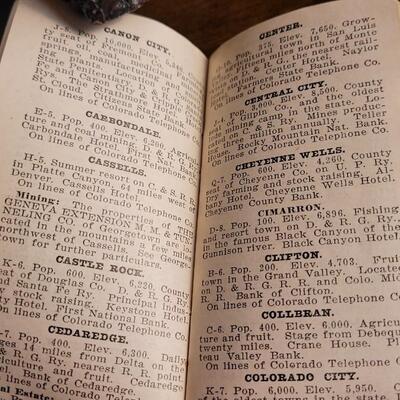 CANON CITY.
J-8. Pop. 10,000. Elev. 5,343. County
ty seat of
springs,
planing
State Penitentiary
Rys. The Strathmore
St. Cloud. Citizens State
On lines of Colorado Telephone Co.
CARBONDALE.
E-5. Pop. 400. Elev. 6,200. Agricul-
ture and coal mining. D. & R. G. Ry.
Carbondale Hotel. First Nat. Bank
On lines of Colorado Telephone Co.
CASSELLS.
H-5. Summer resort on C. & S. R. R.
in Platte Canyon, miles west of
Denver. Cassells Hotel
On lines of Colorado Telephone Co.
Mining: The properties of THE
GENEVA EXTENSION M. M. & TUN-
NELING CO. of Georgetown are
northwest of Cassells. See George-
town for further particulars.
CASTLE ROCK.
K-6. Pop. 600. Elev. 6,220. County
seat of Douglas Co. D. & R. G. Ry.
and Santa Fe Ry. Principal indus-
try stock raising. Keystone Hotel,
City Hotel. First National Bank.
On lines of Colorado Telephone Co.
CEDAREDGE.
-7. Pop. 400. Elev. 6,300. Daily
4 miles from Delta on the
& R. G. R. R. nearest R. R. point.
riculture and fruit. Cedaredge
el. Bank of Cedaredge.
On lines of Colorado Telephone Co.
al Estate:
CENTER.
Pop. 375. Elev. 7,650. Grow-
ing agricultural town in San Luis
Valley. miles north of Monte
on D. & R. G., the nearest rail-
road station. Center Hotel, Naylor
Hotel. Farmers State Bank.
On lines of Colorado Telephone Co.
CENTRAL CITY.
J-4. Pop. 3,000. Elev. 8,500. County
seat of Gilpin Co. and the oldest
gold mining camp in the state. Lo-
cated on C. & S. Ry. Mines produce
over three million annually. Teller
House. Rocky Mountain Nat. Bank.
On lines of Colorado Telephone Co.
CHEYENNE WELLS.
Q-7. Pop. 600. Elev. 4,260. County
seat of Cheyenne Co. on U. P. Ry.
Dry farming and stock raising. Al-
bany Hotel, Cheyenne Wells Hotel.
Cheyenne County Bank.
CIMARRON.
D-8. Pop. 100. Elev. 6,896. Fishing
and resort town on D. & R. G. Ry.,
in the famous Black Canyon of the
Gunnison river. Black Canyon Hotel.
CLIFTON.
B-6. Pop. 200. Elev. 4,703. Fruit
town in the Grand Valley. Located
on D. & R. G. R. R. and Colo. Mid.
R. R. Bank of Clifton.
On lines of Colorado Telephone Co.
COLLBRAN.
C-6. Pop. 400. Elev. 6,000. Agricul-
ture and fruit. Stage from Debeque
miles. Crane House. Pla-
teau Valley Bank.
On lines of Colorado Telephone Co.
COLORADO CITY.
K-7. Pop. 6,000. Elev. 5,950.